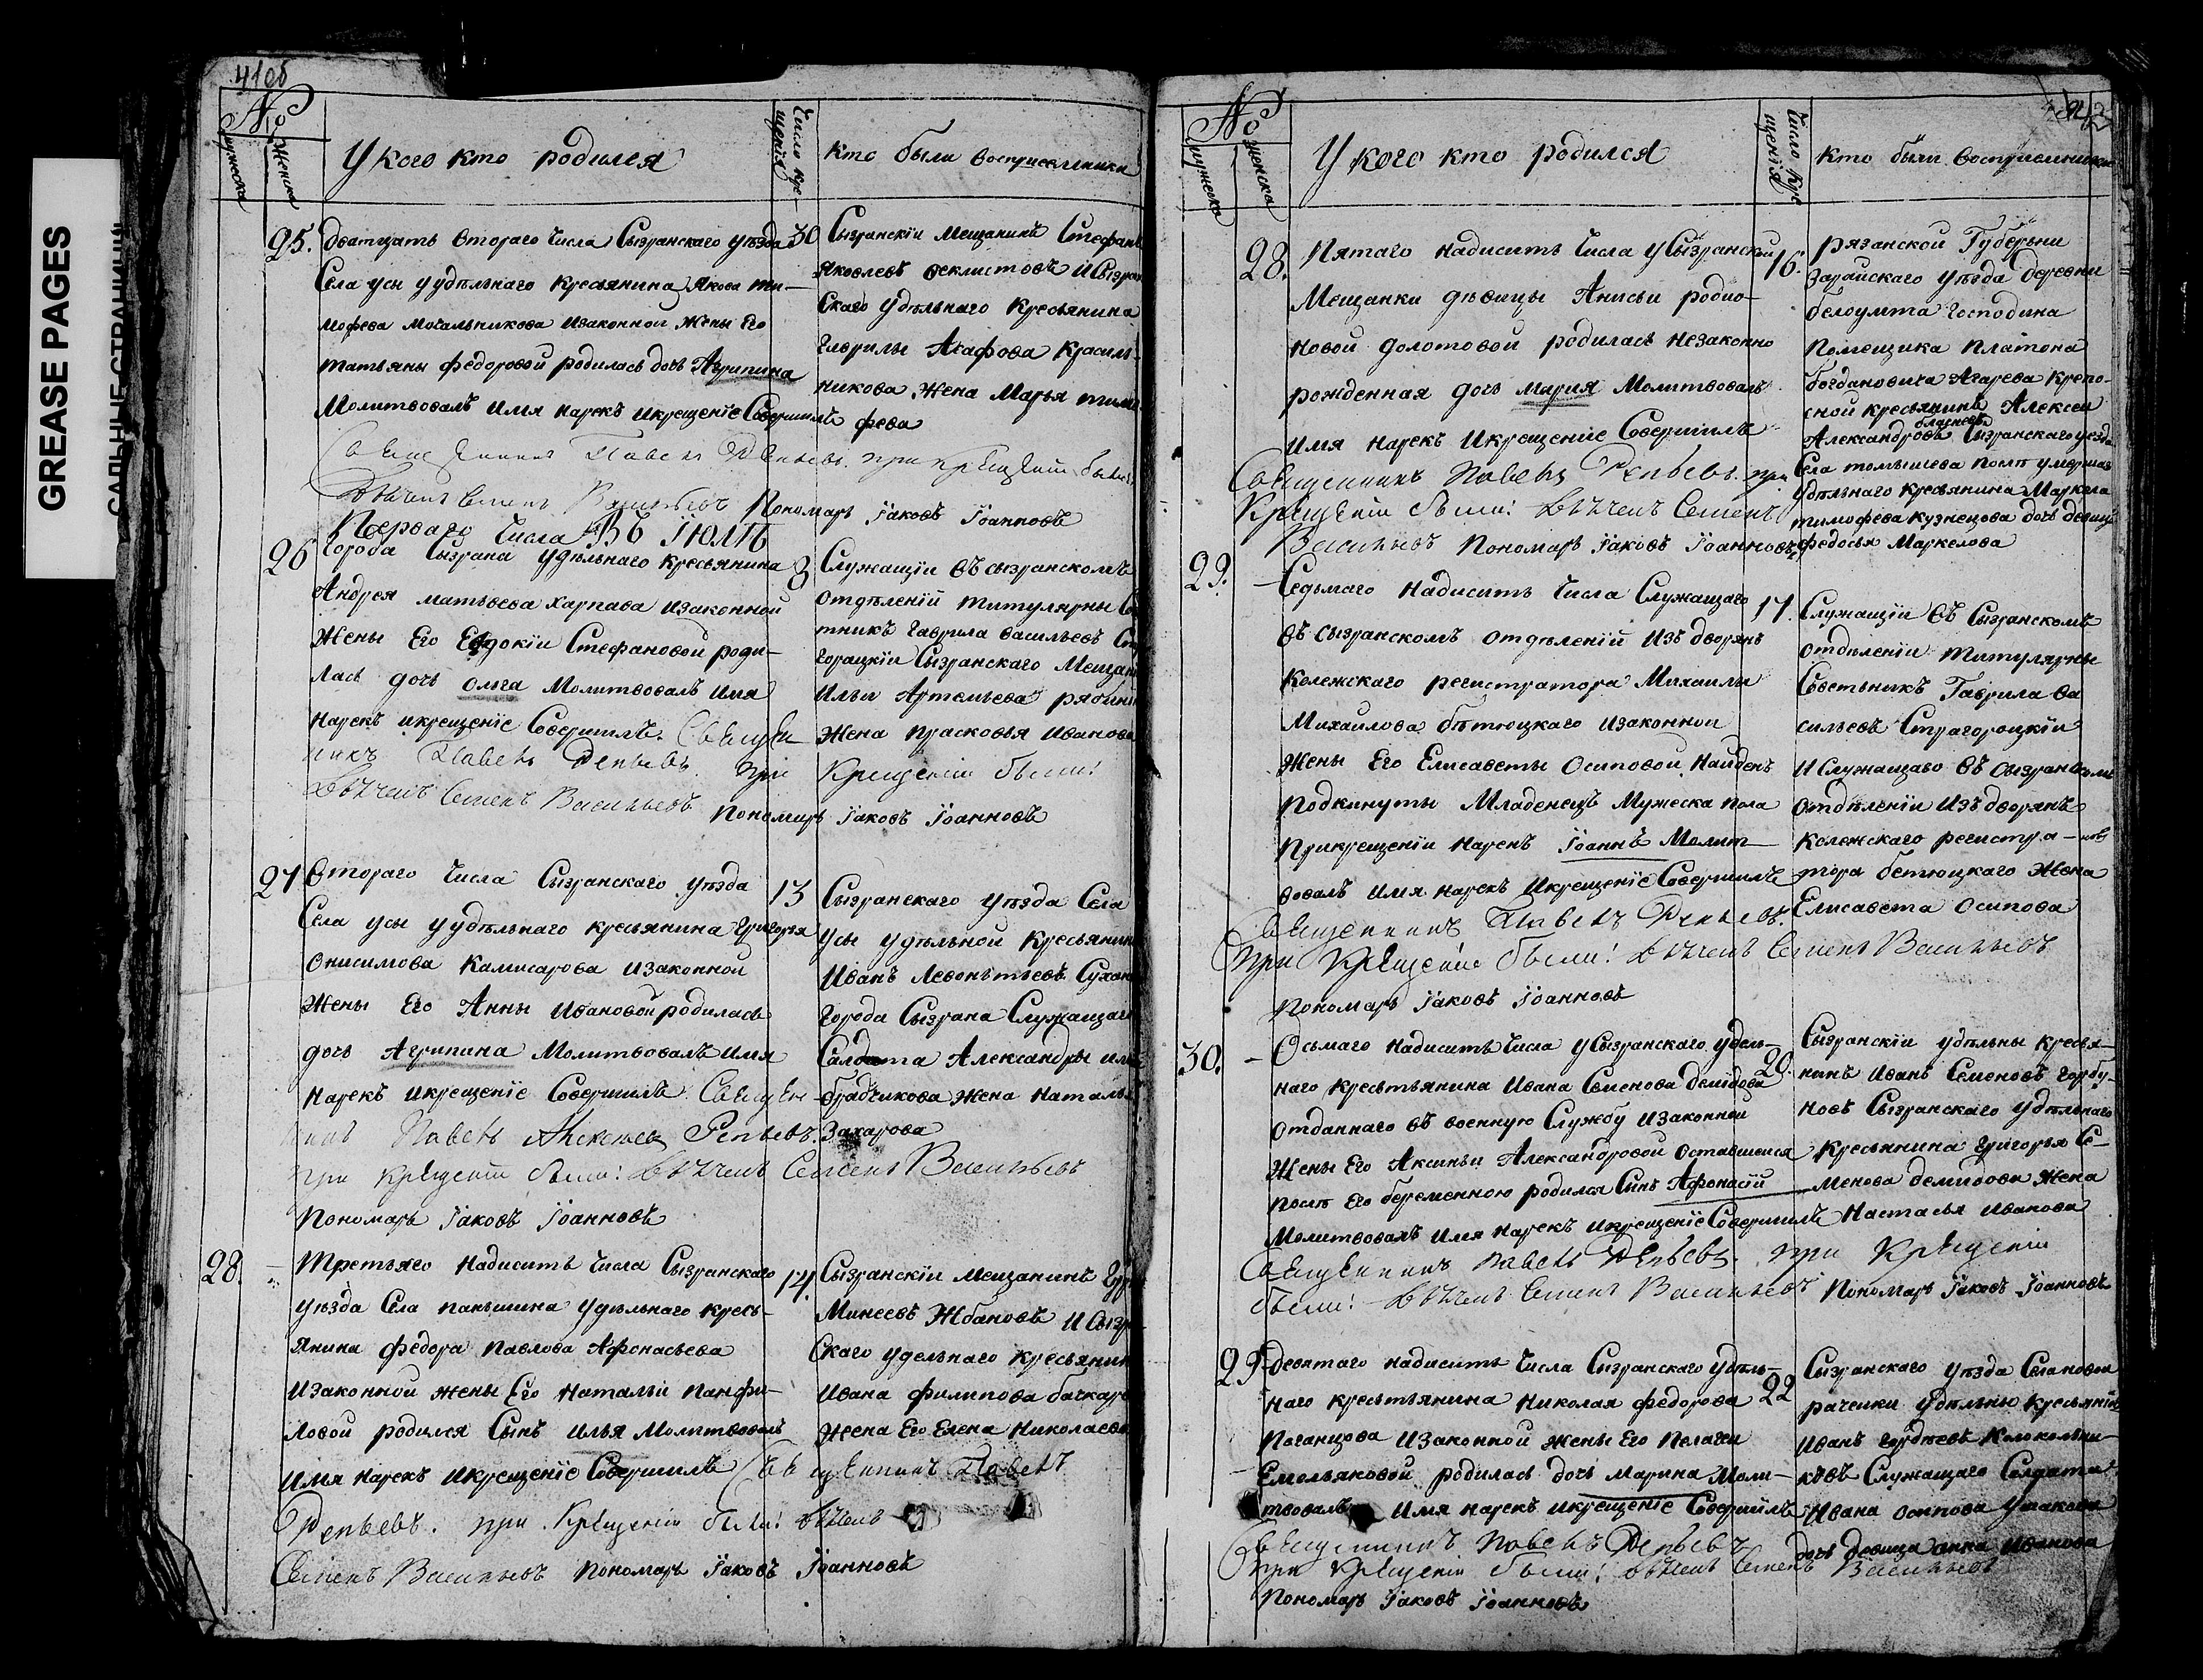 GREASE PAGES
САЛЬНЫЕ СТРАНИЦЫ
41об
№
мужеска
Женска
У кого кто родился
Число кре-
щенія
Кто были восприемники
95. дватцать втораго числа Сызранскаго уѣзда 30
Села усы у удѣльнаго кресьянина Якова ти-
мофева Мочальникова изаконной жены Его
татьяны федоровой родилась дочь Агрипина
Молитвовалъ имя нарекъ икрещеніе Совершилъ
Священникъ Павелъ Репьевъ. при крещеніи были:
Дьячекъ Семенъ Васильевъ Пономарь Іаковъ Іоанновъ
Сызранскіи мещанинъ Стефанъ
Яковлевъ феклистовъ и Сызран
Скаго удѣльнаго Кресьянина
Гаврилы Агафова Красиль-
никова жена Марья тимо
фева
Въ Іюлѣ
Перваго числа
26 города Сызрана удѣльнаго кресьянина 8
Андрея матвѣева Харпава изаконной
жены Его Евдокіи Стефановой роди-
лась дочь ольга Молитвовалъ имя
нарекъ икрещеніе Совершилъ Священ
никъ Павелъ Репьевъ. при крещеніи были:
Дьячекъ Семенъ Васильевъ Пономарь Іаковъ Іоанновъ
Служащіи въ сызранскомъ
отдѣленіи титулярны Со
тникъ гаврила васильевъ Ст
горацкіи Сызранскаго Мещан
ильи Артемьева рябини
жена прасковья иванова
27 втораго числа Сызранскаго уѣзда 13
Села усы у удѣльнаго кресьянина григорья
онисимова Камисарова изаконной
жены Его Анны ивановой родилась
дочь Агрипина Молитвовалъ имя
нарекъ икрещеніе Совершилъ Священ
никъ Павелъ Алексеевъ Репьевъ.
при крещеніи были: Дьячекъ Семенъ Васильевъ
Пономарь Іаковъ Іоанновъ
Сызранскаго уѣзда Села
усы удѣльной кресьянин
иванъ Левонтьевъ Сухан
города Сызрана Служащаг
Салдата Александры
брадчикова жена наталь
Захарова
28. третьяго надисить числа Сызранскаго 14.
уѣзда Села паньшина удѣльнаго кресь-
янина федора павлова Афонасьева
изаконной жены Его натальи панфи-
ловой родился Сынъ илья Молитвовалъ
имя нарекъ икрещеніе Совершилъ Священникъ Павелъ
Репьевъ. при крещеніи были: Дьячекъ
Семенъ Васильевъ Пономарь Іаковъ Іоанновъ
Сызранскіи мещанинъ
Минеевъ Жбановъ и Сызр
Скаго удельнаго кресьянин
ивана филипова бачкаре
жена Его Елена николаева
42
№
мужеска
женска
У кого кто родился
Число кре
щенія
Кто были восприемники
28. Пятаго надисить числа у Сызранской 16.
Мещанки дѣвицы Анисьи родио-
новой долотовой родилась незаконно
рожденная дочь мария Молитвовалъ
имя нарекъ икрещеніе Совершилъ
Священникъ Павелъ Репьевъ. при
Крещеніи были: Дьячекъ Семенъ
Васильевъ Пономарь Іаковъ Іоанновъ
рязанской Губерьни
Зарайскаго уѣзда деревни
белоумта господина
помещика платона
богдановича Агарева крепо-
сной кресьянинъ Алексеи
Александровъ Сызранскаго уезда
Села томышева послѣ умершаг
удѣльнаго кресьянина Маркела
тимофева кузнецова дочь девица
федосья Маркелова
29. Седьмаго надисить числа Служащаго 17.
въ сызранскомъ отдѣленіи изъ дворянъ
Колежскаго регистратора Михаилы
Михаилова бѣтюцкаго изаконной
жены Его Елисаветы Осиповой Найденъ
подкинуты Младенецъ мужеска пола
прикрещеніи наренъ Іоаннъ Молит-
вовалъ имя нарекъ икрещеніе Совершилъ
Священникъ Павелъ Репьевъ.
при крещеніи были: Дьячекъ Семенъ Васильевъ
Пономарь Іаковъ Іоанновъ
Служащіи въ Сызранскомъ
отдѣленіи титулярны
Советьникъ Гаврила ва
сильевъ Страгороцкіи
и Служащаво въ сызранскомъ
отдѣленіи изъ дворянъ
колежскаго регистра-
тора бетюцкаго жена
Елисавета осипова
30. Осьмаго надисить числа у Сызранскаго удель- 20.
наго кресьтьянина ивана Семенова демідова
отданнаго въ военную Службу изаконной
жены Его Аксиньи Александровой оставшеися
послѣ Его беременною родился Сынъ Афонасій
Молитвовалъ имя нарекъ икрещеніе Совершилъ
Священникъ Павелъ Репьевъ. при Крещеніи
были: Дьячекъ Семенъ Васильевъ Пономарь Іаковъ Іоанновъ
Сызранскіи удѣльны кресья-
нинъ иванъ Семеновъ горбу-
новъ Сызранскаго удѣльнаго
кресьянина григорья Се-
менова демидова жена
настасья иванова
29 девятаго надисить числа Сызранскаго удѣль- 22
наго кресьтьянина николая федорова
паганцова изаконной жены Его пелагеи
Емельяновой родилась дочь марина Моли-
твовалъ имя нарекъ икрещеніе Совершилъ
Священникъ Павелъ Репьевъ
при крещеніи были: Дьячекъ Семенъ Васильевъ
Пономарь Іаковъ Іоанновъ
Сызранскаго уѣзда Села новой
рачеики удѣльны кресьянинъ
иванъ гордѣевъ Колокольни-
ковъ Служащаго Солдата
ивана осипова ушакова
дочь девица анна иванова